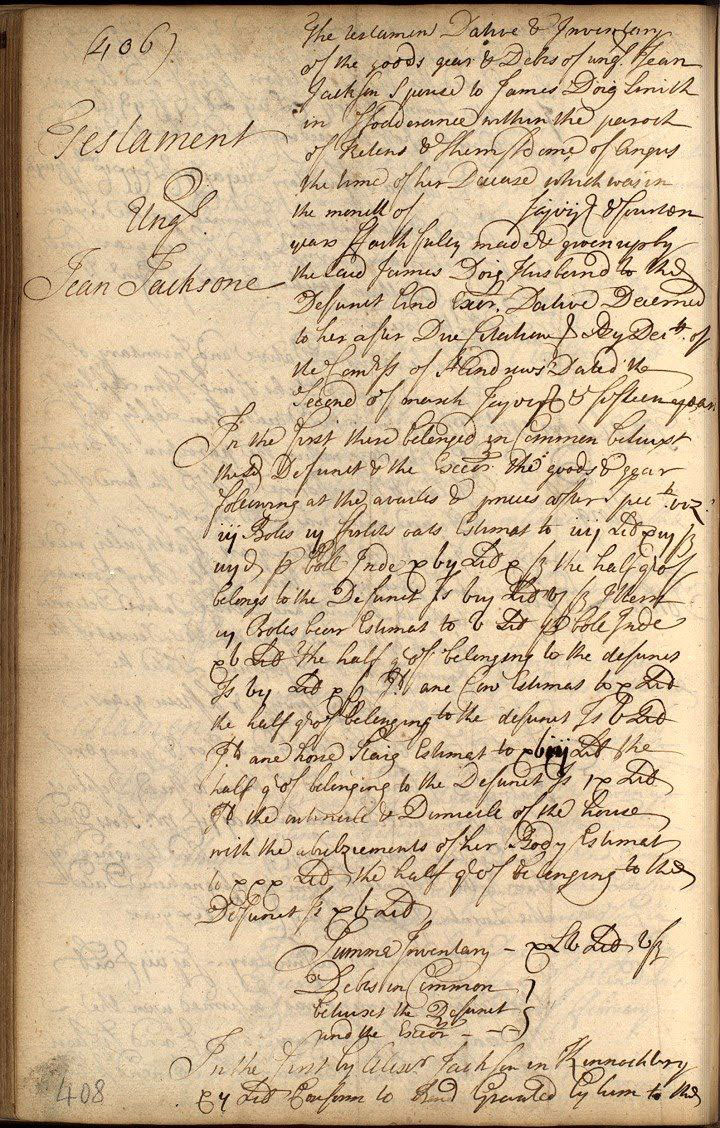 (406)
Testament
Umqll
Jean Jacksone
The testament Dative & Inventary
of the goods gear & Debts of umqll Jean
Jackson Spouse to James Doig Smith
in within the paroch
of & Sherrifdome of Angus
the time of her Decease which was in
the moneth of JajvijC & fourteen
years ffaithfully made & given up by
the said James Doig Husband to the
Defunct and Exer. Dative Decerned
to her after Due Citatione & By Decrtt. of
the Comiss of St Andrews Dated the
Second of march JajvijC & fifteen years
In the first there belonged in Common betwixt
the sd Defunct & the Execor the goods & gear
following at the availes & prices after spect. viz.
iij Boles iij firlits oats Estimat to iiij Lib xiij ß
iiij d p bole Inde xvij Lib x ß the half qrof
belongs to the Defunct Is viij Lib xv ß Item
iij Boles bear Estimat to v Lib p bole Inde
xv Lib the half qrof belonging to the defunct
Is vij Lib x ß It ane Cow Estimat to x Lib
the half qrof belonging to the defunct Is v Lib
It ane horse Staig Estimat to xviij Lib the
half qrof belonging to the Defunct Is ix Lib
It the utencile & Domicile of the house
with the abulziements of her Body Estimat
to xxx Lib the half qrof belonging to the
Defunct Is xv Lib
Summa Inventary - xLv Lib v ß
Debts in Common
betwixt the Defunct
and the Execor - -
In the first by Alexr Jackson in
xy Lib Conform to Band Granted by him to the
408